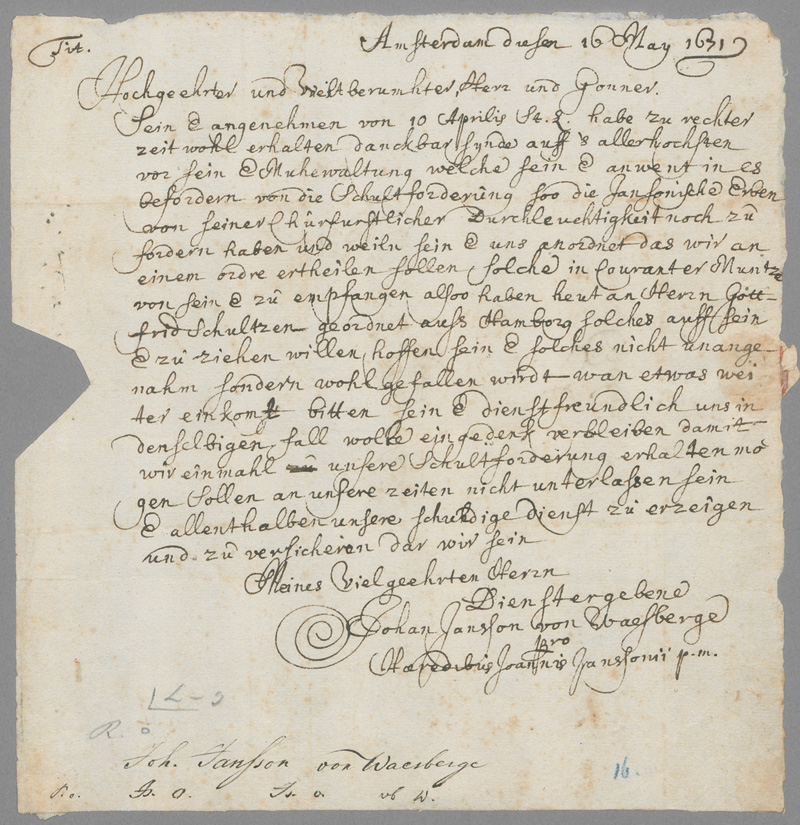 Tit. Amsterdam diesen 16 May 1631
Hochgeehrter und Weltberumhter Herr und Gonner.
Sein E angenehmen von 10 Aprilis St. habe zu rechter
zeit wohl erhalten danckbar synde auff 's allerhochsten
vor sein E Muhewaltung welche sein E anwent in es
befordern von die Schultforderung soo die Jansonische Erben
von seiner Churfurstlicher Durchleuchtigkeit noch zu
fordern haben und weiln sein E uns anordnet das wir an
einem ordre ertheilen sollen, solche in Couranter Muntze
von sein E zu empfangen alsoo haben heut an Herrn Gott-
frid Schultzen geordnet auss Hamborg solches auff sein
E zu ziehen willen, hoffen sein E solches nicht unange-
nahm sondern wohl gefallen wirdt wan etwas wei
ter einkomt bitten sein E dienstfreundlich uns in
denselbigen fall wolle eingedenk verbleiben damit
wir einmahl unsere Schultforderung erhalten mo
gen Sollen an unsere zeiten nicht unterlassen sein
E allenthalben unsere schuldige dienst zu erzeigen
und zu versicheren dar wir sein
Meines Vielgeehrten Herrn
Dienstergebene
Johan Jansson von Waesberge
pro
Haredibus Joannis Janssonii p.m.
R. o
Joh. Jansson von Waesberge
16.